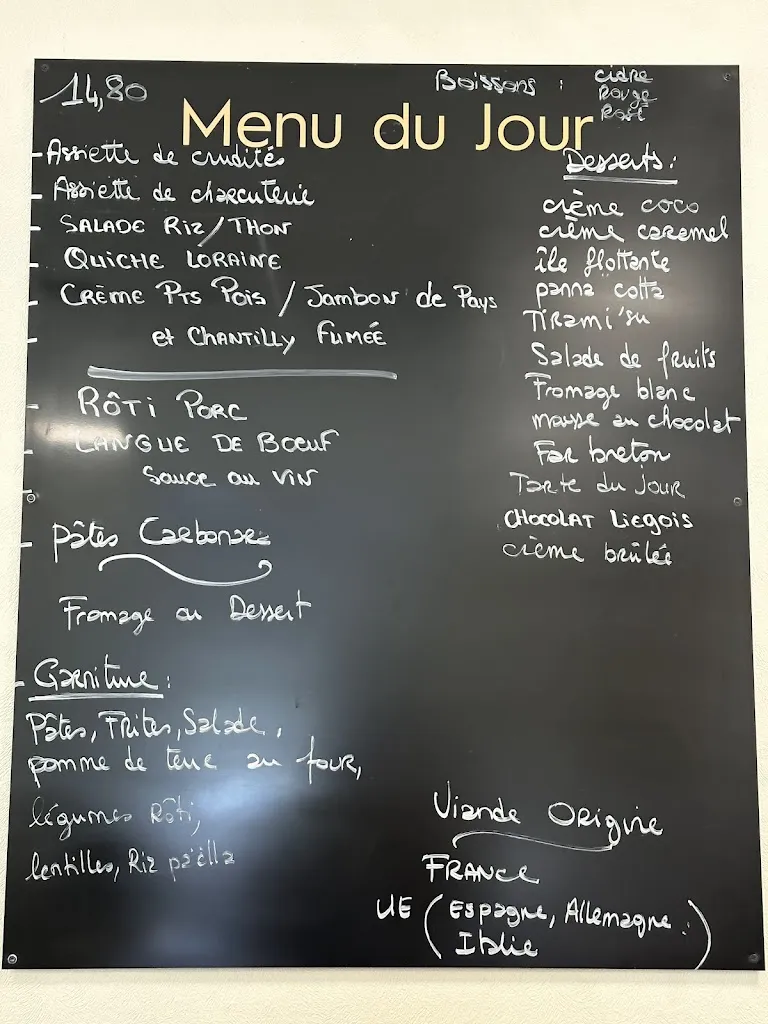 14,80
Boissons : cidre
Rouge
Rosé
Menu du Jour
- Assiette de crudités
- Assiette de charcuterie
- SALADE RIZ/THON
- QUICHE LORAINE
- CRÈME PTS POIS / JAMBON de PAYS
et CHANTILLY FUMÉE
- RÔTI PORC
- LANGUE DE BOEUF
Sauce au VIN
- Pâtes Carbonara
Fromage ou Dessert
- Garniture :
Pâtes, Frites, Salade,
pomme de terre au four,
légumes Rôti,
lentilles, Riz paëlla
Desserts :
crème coco
crème caramel
île flottante
panna cotta
Tirami'su
Salade de fruits
Fromage blanc
mousse au chocolat
Far breton
Tarte du Jour
CHOCOLAT LIEGOIS
crème brûlée
Viande Origine
FRANCE
UE (Espagne, Allemagne.
Italie)